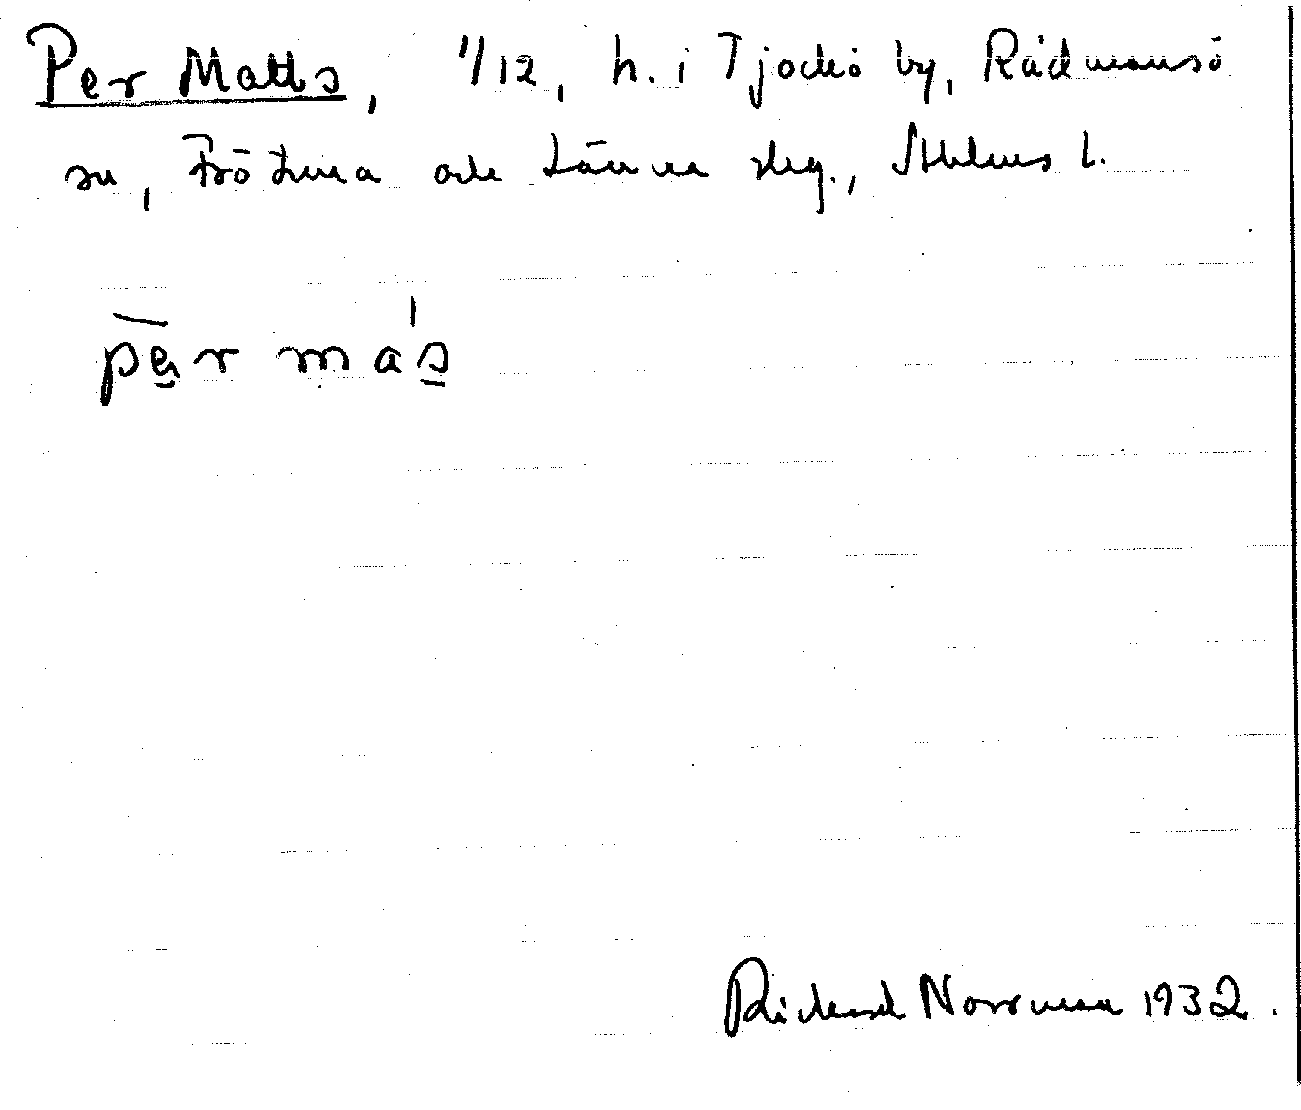 Per Matts, 1/12, h. i Tjockö by, Rådmansö
sn, Frötuna och Länna skg., Sthlms l.
pęr mas
Rickard Norrman 1932.